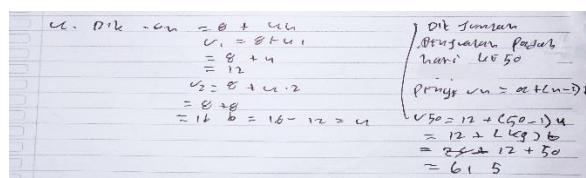 4. Dik : un = 8 + 4n
U1 = 8 + 4.1
= 8 + 4
= 12
U2 = 8 + 4.2
= 8 + 8
= 16 b = 16 - 12 = 4
Dit Jumlah
Penjualan Padah
hari ke 50
Peny: un = a + (n-1)b
U50 = 12 + (50-1)4
= 12 + (49) b
= 12 + 50
= 61 5